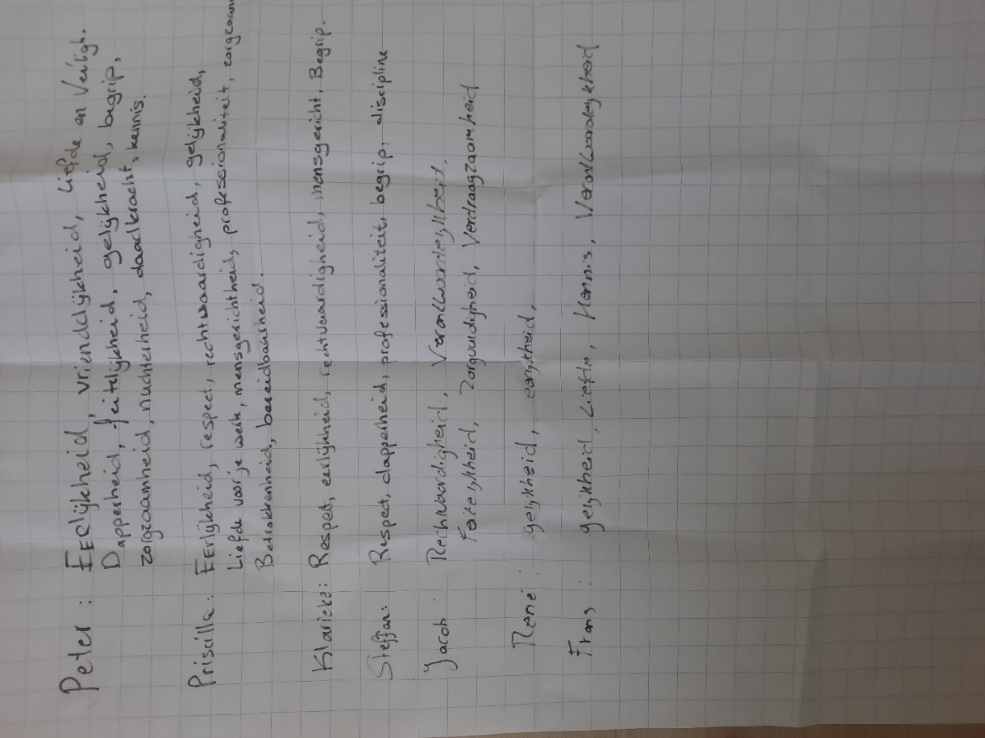 Peter: EErlijkheid, vriendelijkheid, liefde en Veiligh.
Dapperheid, feitelijkheid, gelijkheid, begrip,
zorgzaamheid, nuchterheid, daadkracht, kennis.
Priscilla: EErlijkheid, respect, rechtvaardigheid, gelijkheid,
Liefde voor je werk, mensgerichtheid, professionaliteit, zorgzaam
Betrokkenheid, bereidbaarheid.
Klarieke: Respect, eerlijkheid, rechtvaardigheid, mensgericht, Begrip.
Steffan: Respect, dapperheid, professionaliteit, begrip, discipline
Jacob: Rechtvaardigheid, Verantwoordelijkheid,
Feitelijkheid, zorgvuldigheid, Verdraagzaamheid
René: gelijkheid, eerlijkheid,
Frans: gelijkheid, Liefde, Kennis, Verantwoordelijkheid